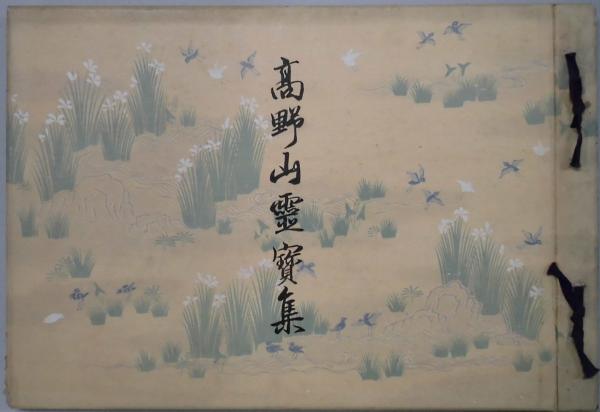 高野山靈寶集